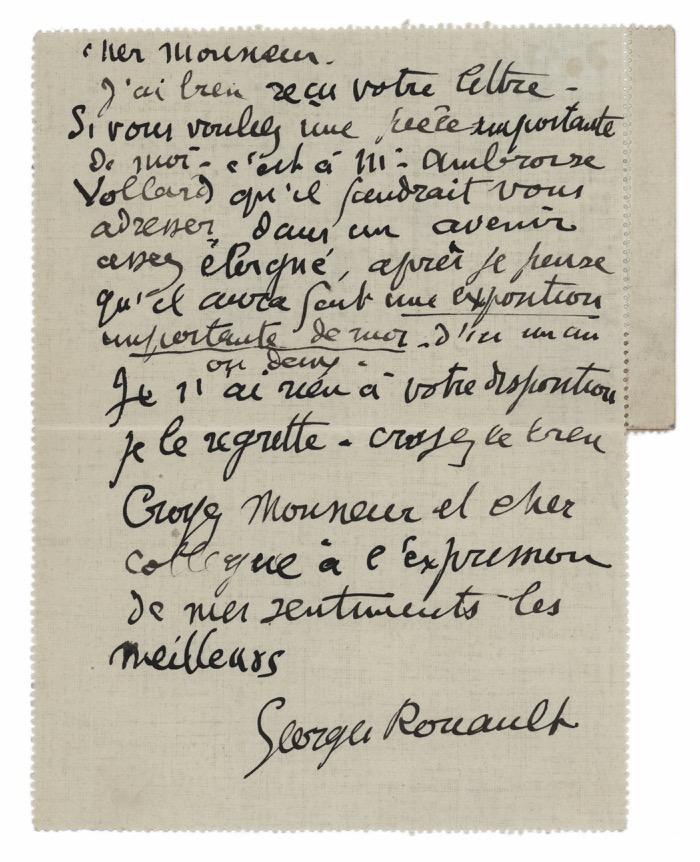 cher Monsieur.
J'ai bien reçu votre lettre -
Si vous voulez une pièce importante
de moi - c'est à Mr. Ambroise
Vollard qu'il faudrait vous
adresser dans un avenir
assez éloigné, après je pense
qu'il aura fait une exposition
importante de moi - d'ici un an
ou deux -
Je n'ai rien à votre disposition
je le regrette - croyez le bien
Croyez Monsieur et cher
collègue à l'éxpression
de mes sentiments les
meilleurs
Georges Rouault